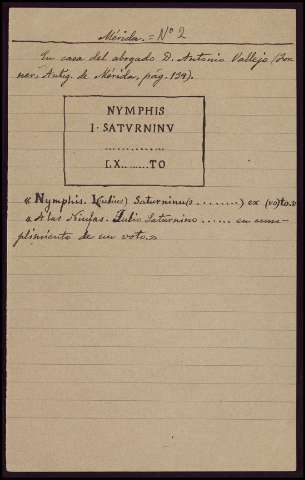 Mérida.= Nº 2
En casa del abogado D. Antonio Vallejo (For-
ner, Antig. de Mérida, pág. 139).
NYMPHIS
I · SATVRNINV
..............
EX.......TO
« Nymphis. I(ulius) Saturninu(s .........) ex (vo)to.»
« A las Ninfas. Julio Saturnino ...... en cum-
plimiento de un voto.»